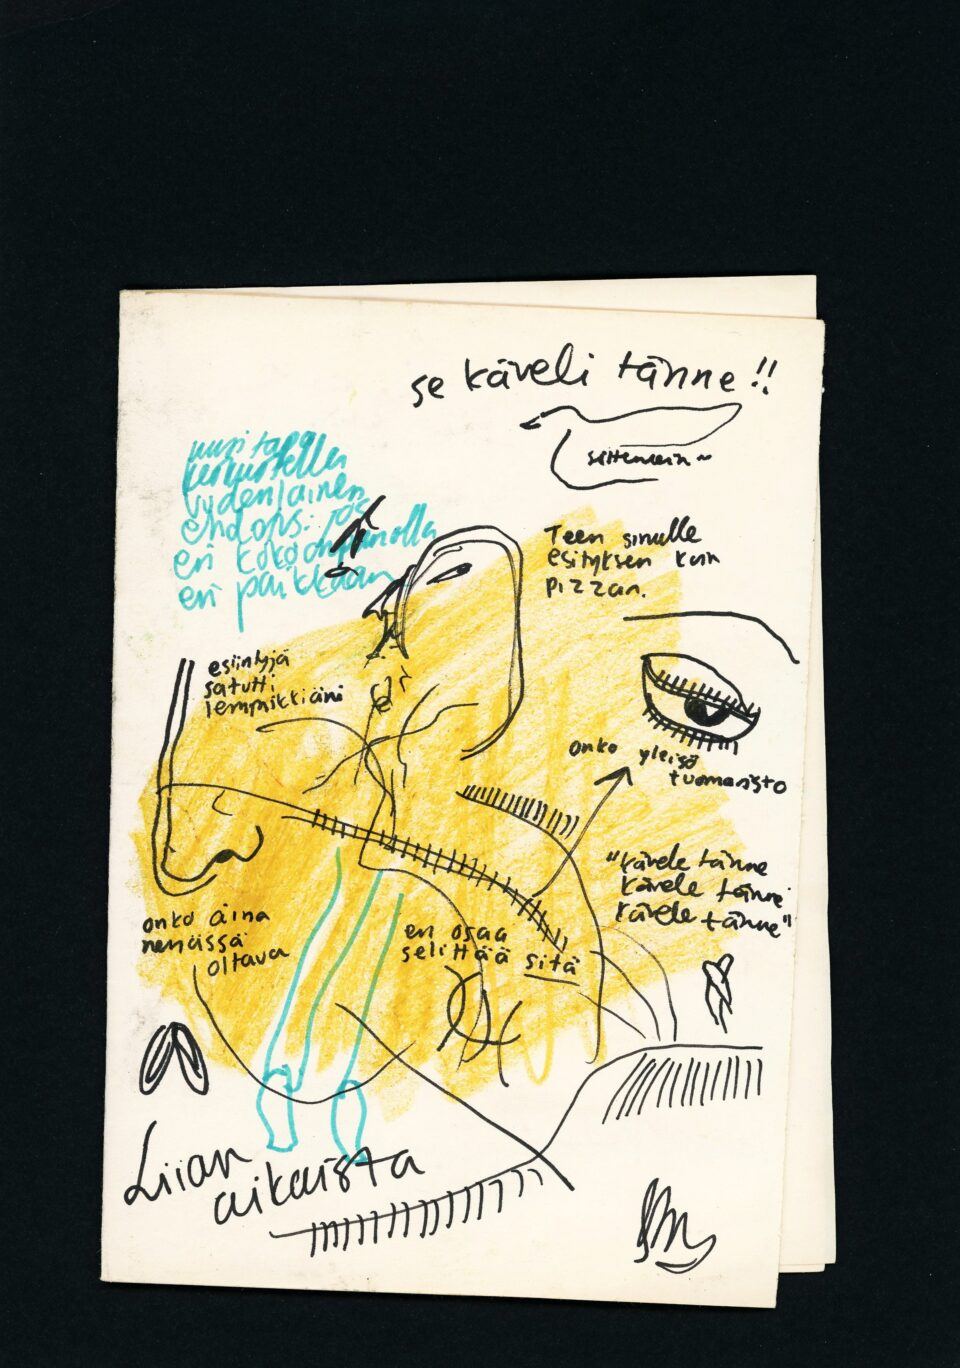 se käveli tänne!!
sittemmin~
uusi tapa
keskustella
viidenlainen
ehdotus:
eri koko
eri paikkaan
Teen sinulle
esityksen kuin
pizzan.
esiintyjä
satutti
lempinikkiäni
onko yleisö
tuomaristo
"kävele tänne
kävele tänne
kävele tänne"
onko aina
nenässä
oltava
en osaa
selittää sitä
Liian
aikaista